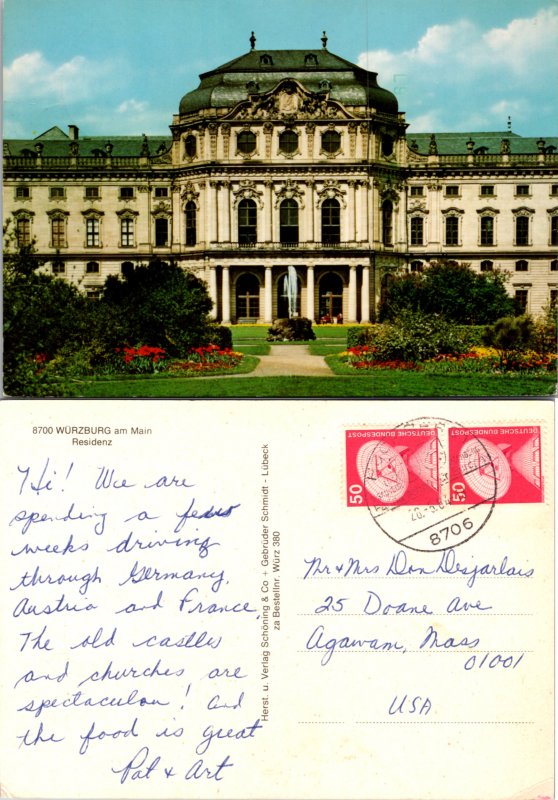 8700 WÜRZBURG am Main
Residenz
Hi! We are
spending a few
weeks driving
through Germany,
Austria and France.
The old castles
and churches are
spectacular! And
the food is great
Pat & Art
Herst. u. Verlag Schöning & Co + Gebrüder Schmidt - Lübeck
za Bestellnr. Würz 380
DEUTSCHE BUNDESPOST
50
DEUTSCHE BUNDESPOST
50
8706
Mr & Mrs Don Desjarlais
25 Doane Ave
Agawam, Mass
01001
USA